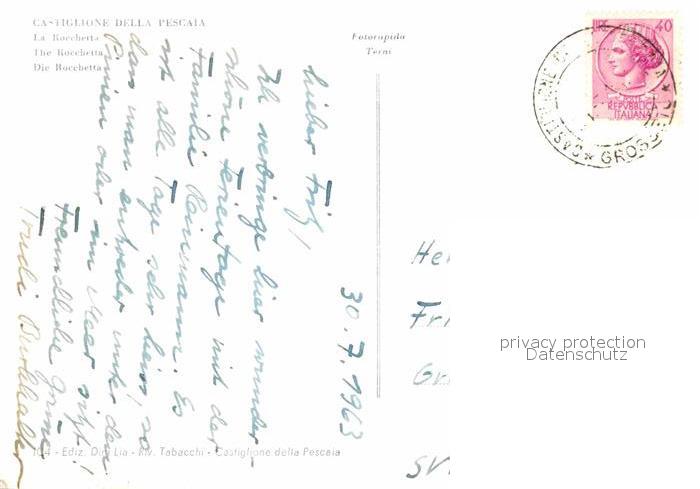 CASTIGLIONE DELLA PESCAIA
La Rocchetta
The Rocchetta
Die Rocchetta
Fotorapida
Terni
LIRE 40
REPVBBLICA
ITALIANA
GROSSETO
30.7.1963
Lieber Fritz!
Ich verbringe hier wunder-
schöne Ferientage mit der
Familie Reinmann. Es
ist alle Tage sehr heiss, so
dass man entweder unter den
Pinien oder im Meer sitzt!
Freundliche Grüsse
Trudi Burkhalter
104 - Ediz. Lia - Riv. Tabacchi - Castiglione della Pescaia
privacy protection
Datenschutz